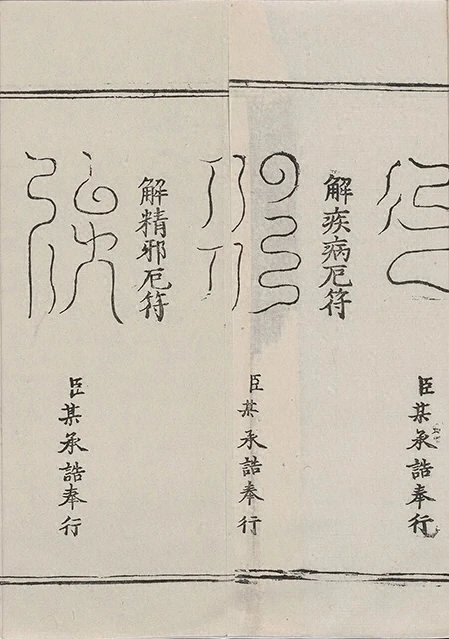 臣某承誥奉行
解疾病厄符
臣某承誥奉行
解精邪厄符
臣某承誥奉行